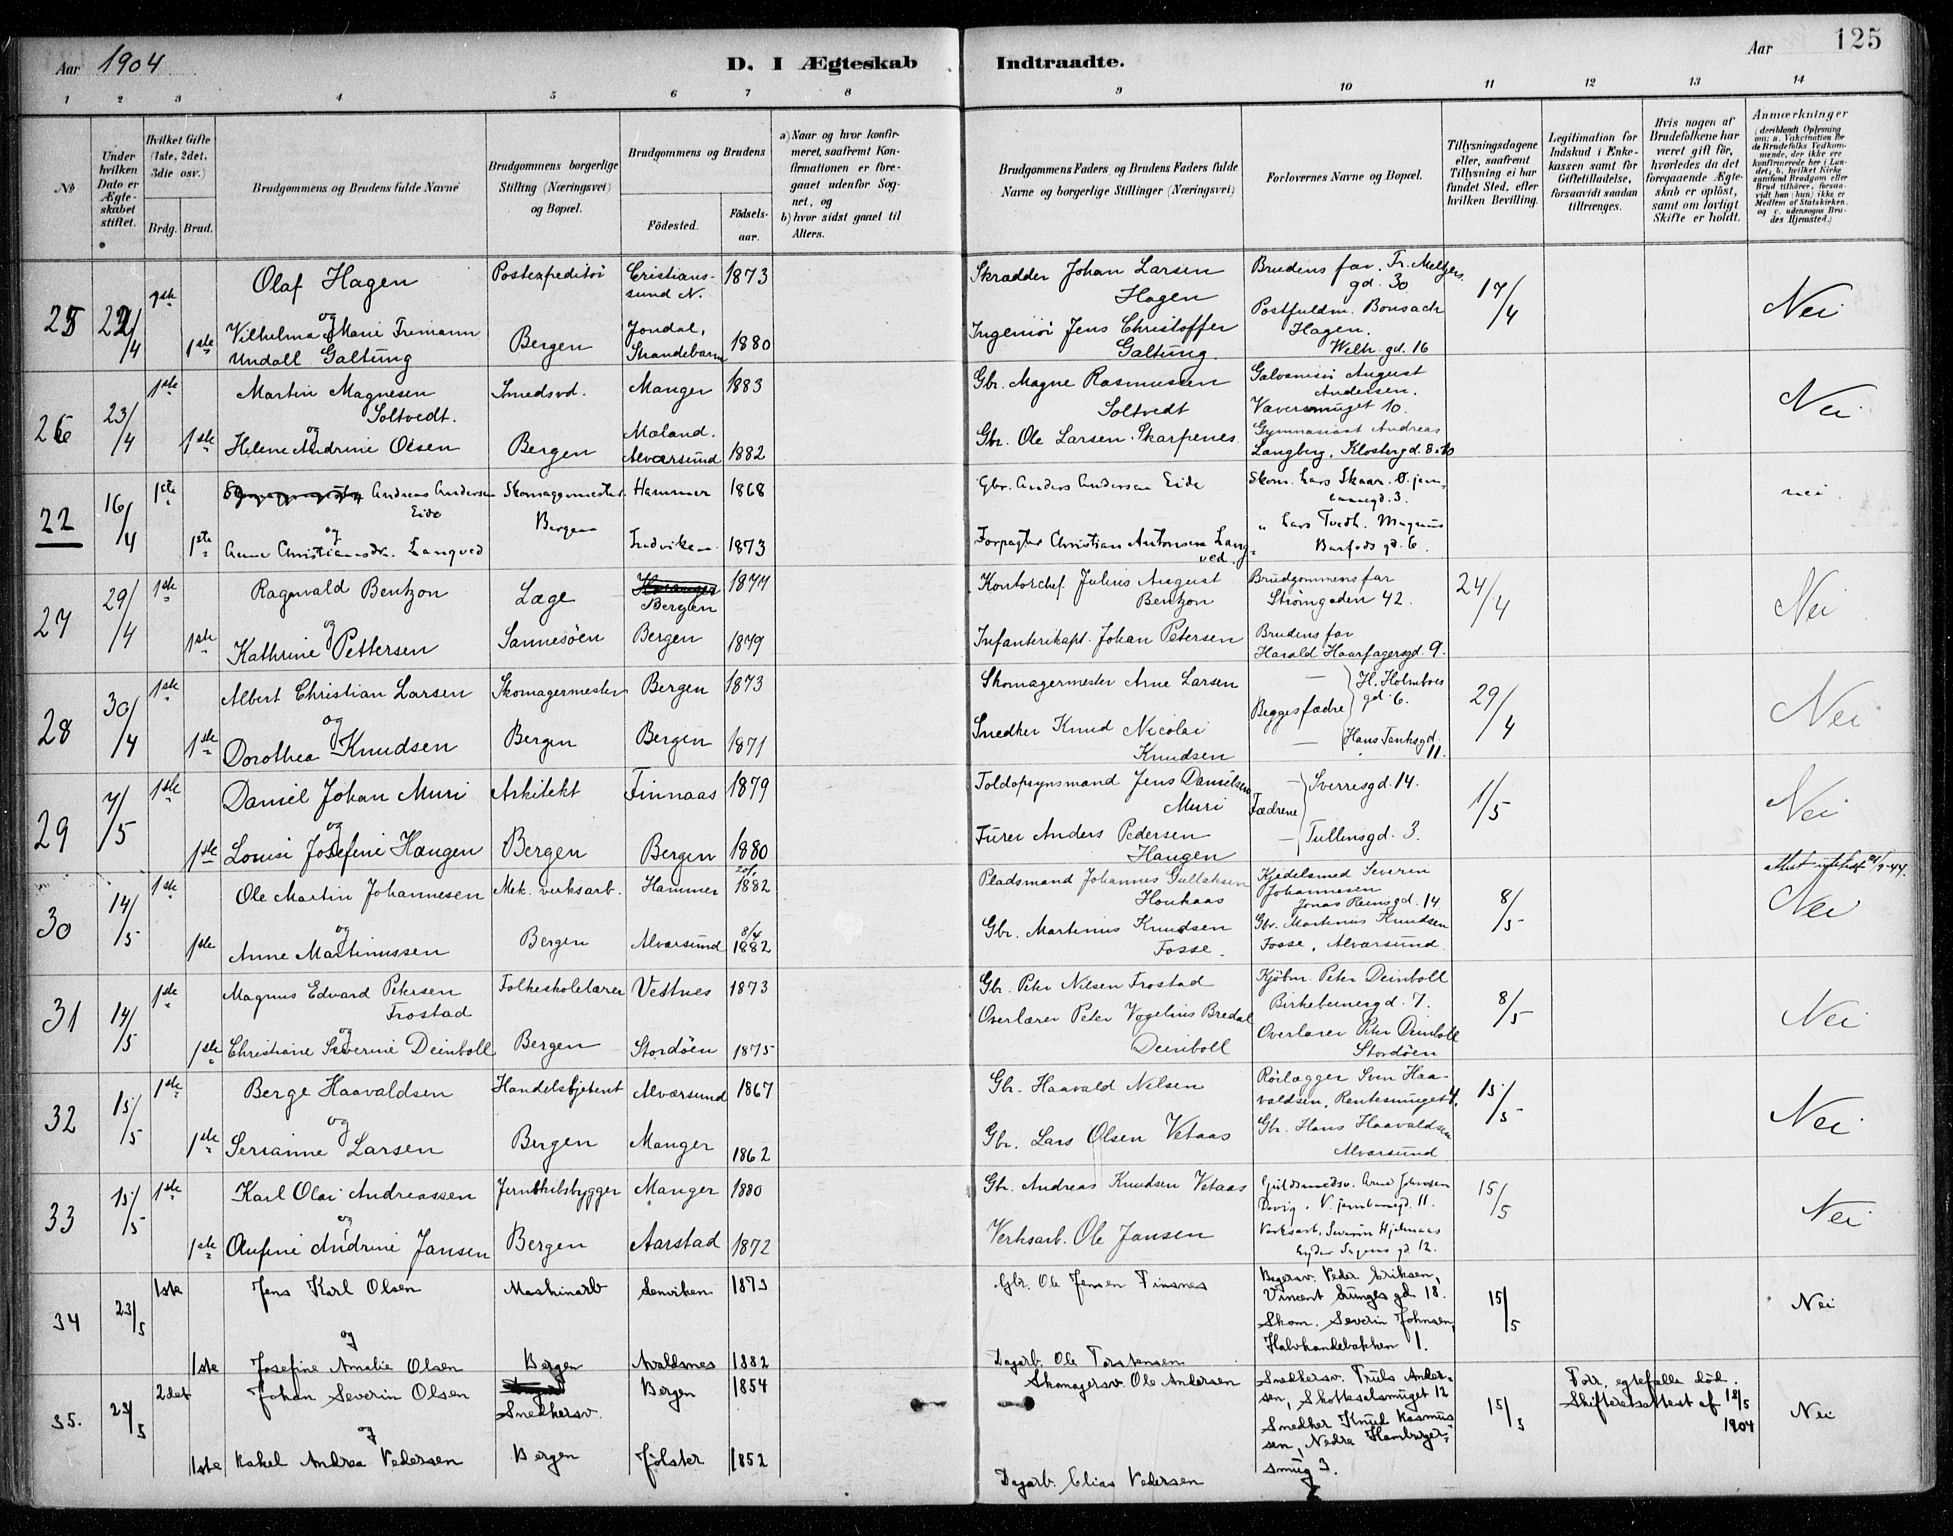 Aar 1904
D. I Ægteskab Indtraadte.
Aar 125
1 2 3 4 5 6 7 8 9 10 11 12 13 14
No
Under hvilken Dato er Ægteskabet stiftet.
Hvilket Gifte (1ste, 2det, 3die osv.)
Brdg. Brud.
Brudgommens og Brudens fulde Navne
Brudgommens borgerlige Stilling (Næringsvei) og Bopæl.
Brudgommens og Brudens
Födested. Födselsaar.
a) Naar og hvor konfirmeret, saafremt Konfirmationen er foregaaet udenfor Sognet, og
b) hvor sidst gaaet til Alters.
Brudgommens Faders og Brudens Faders fulde Navne og borgerlige Stillinger (Næringsvei)
Forlovernes Navne og Bopæl.
Tillysningsdagene eller, saafremt Tillysning ei har fundet Sted, efter hvilken Bevilling.
Legitimation for Indskud i Enkekassen samt for Giftetilladelse, forsaavidt saadan tiltrænges.
Hvis nogen af Brudefolkene har været gift för, hvorledes da det foregaaende Ægteskab er oplöst, samt om lovligt Skifte er holdt.
Anmærkninger
(deriblandt Oplysning om: a. Vakcination for de Brudefolks Vedkommende, der ikke ere konfirmerede her i Landet; b. hvilket Kirkesamfund Brudgom eller Brud tilhører, forsaavidt han (hun) ikke er Medlem af Statskirken, og c. udensogns Brudes Hjemsted.)
25 22/4 1ste Olaf Hagen Postexpeditör Cristianssund N. 1873 Skrædder Johan Larsen Hagen Brudens far, Fr. Meltzersgd. 30 17/4 Nei
og
1ste Vilhelma Marie Tremann Undall Galtung Bergen Jondal, Strandebarm 1880 Ingeniör Jens Christoffer Galtung Postfuldm. Bonsach Hagen. Welh. gd. 16
26 23/4 1ste Martin Magnesen Soltvedt. Smedsvd. Manger 1883 Gbr. Magne Rasmussen Soltvedt Galvanisör August Andersen. Væversmuget 10. Nei
og
1ste Helene Andrine Olsen Bergen Mæland. Alversund 1882 Gbr. Ole Larsen Skarpenes Gymnasiast Andreas Langberg, Klostergd.
22 16/4 1ste Andreas Andersen Eide Skomagermester Hammer 1868 Gbr. Anders Andersen Eide Skom. Lars Skaar. Ø. jernbanegd. 3. nei.
og
1ste Anne Christiansdr. Langved Bergen Indviken 1873 Forpagter Christian Antonsen Langved " Lars Tvedt. Magnus Barfods gd. 6.
27 29/4 1ste Ragnvald Bentzon Læge Bergen 1877 Kontorchef Julius August Bentzon Brudgommens far Strömgaden 42. 24/4 Nei
og
1ste Kathrine Pettersen Sannesöen Bergen 1879 Infanterikapt. Johan Petersen Brudens far Harald Haarfagersgd. 9.
28 30/4 1ste Albert Christian Larsen Skomagermester Bergen 1873 Skomagermester Arne Larsen Begges fædre H. Holmboes gd 6. 29/4 Nei
og
1ste Dorothea Knudsen Bergen Bergen 1871 Snedker Knud Nicolai Knudsen Hans Tanksgd. 11.
29 7/5 1ste Daniel Johan Muri Arkitekt Finnaas 1879 Toldopsynsmand Jens Danielsen Muri Fædrene Sverresgd. 14. 1/5 Nei
og
1ste Louise Josefine Haugen Bergen Bergen 1880 Furer Anders Pedersen Haugen Tullinsgd. 3.
30 14/5 1ste Ole Martin Johannesen Mek. verksarb. Hammer 1882 Pladsmand Johannes Gullaksen Honkaas Kjedelsmed Severin Johannesen Jonas Reinsgd. 14 8/5 Nei
og
1ste Anne Martinussen Bergen Alversund 8/4 1882 Gbr. Martinus Knudsen Fosse. Gbr. Martinus Knudsen Fosse, Alversund.
31 14/5 1ste Magnus Edvard Petersen Frostad Folkeskolelærer Vestnes 1873 Gbr. Peter Nilsen Frostad Kjöbm. Peter Deinboll Birkebeinergd. 7. 8/5 Nei
og
1ste Christiane Severine Deinboll Bergen Stordöen 1875 Overlærer Peter Vogelius Bredal Deinboll Overlærer Peter Deinboll Stordöen
32 15/5 1ste Berge Haavaldsen Handelsbetjent Alversund 1867 Gbr. Haavald Nilsen Rörlægger Sven Haavaldsen, Rentesmuget 4. 15/5 Nei
og
1ste Serianne Larsen Bergen Manger 1862 Gbr. Lars Olsen Vetaas Gbr. Hans Haavaldsen Alversund
33 15/5 1ste Karl Olai Andreassen Jernskibsbygger Manger 1880 Gbr. Andreas Knudsen Vetaas Guldsmedsv. Arne Johnsen V. jernbanegd. 11. 15/5 Nei
og
1ste Olufine Andrine Jansen Bergen Aarstad 1872 Verksarb. Ole Jansen Verksarb. Severin Hjelmaas Lyder Sagens gd 12.
34 23/5 1ste Jens Karl Olsen Maskinarb Senviken 1873 Gbr. Ole Jensen Finsnes Bagersv. Peder Eriksen, Vincent Lunges gd 18. 15/5 Nei
og
1ste Josefine Amalie Olsen Bergen Avaldsnes 1882 Dagarb. Ole Torstensen Skom. Severin Johnsen, Kalvhandebakken 1.
35. 23/5 2det Johan Severin Olsen Snedkersv. Bergen 1854 Skomagersv. Ole Andersen Snedkersv. Truls Andersen, Skottesalsmuget 12 15/5 Forr. egtefelle död. Skifteretsattest af 18/5 1904 Nei
og
1ste Rakel Andrea Pedersen Bergen Jölster 1852 Dagarb. Elias Pedersen Snedker Knud Rasmussen, Nedre Hamburgersmug 3.